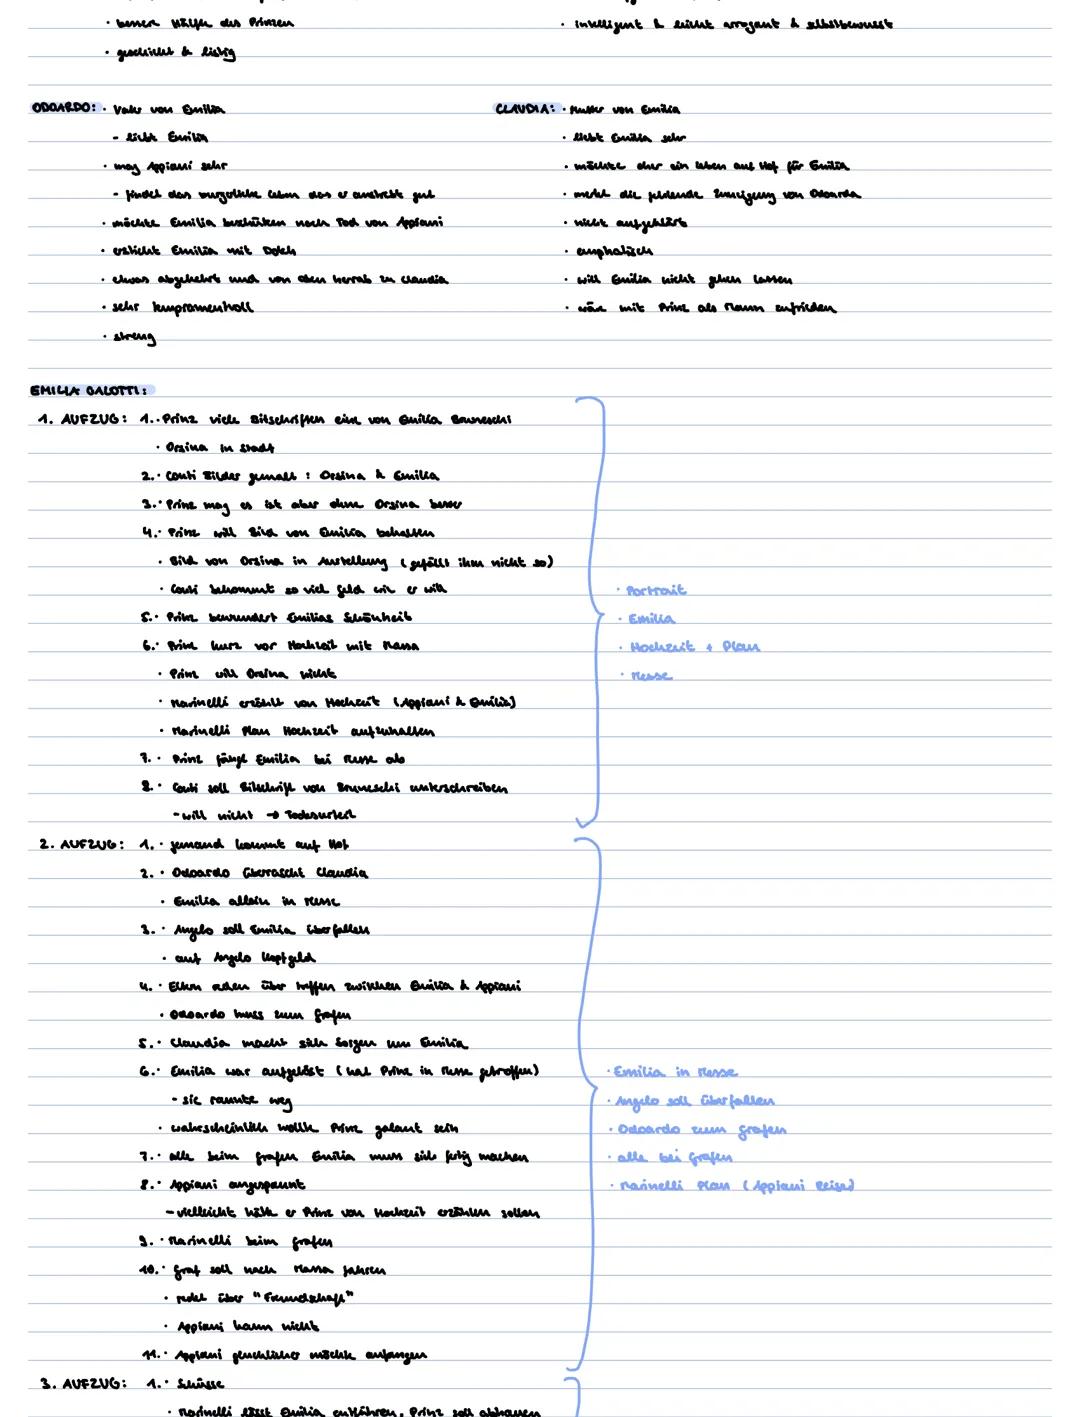 · bessere Hälfte des Prinzen
· intelligent & leicht arrogant & selbstbewusst
· geschickt & listig
ODOARDO: · Vater von Emilia
- liebt Emilia
· mag Appiani sehr
- findet das bürgerliche Leben das er anstrebt gut
· möchte Emilia beschützen nach Tod von Appiani
· ersticht Emilia mit Dolch
· etwas abgekehrt und von oben herrab zu Claudia
· sehr tempramentvoll
· streng
CLAUDIA: · Mutter von Emilia
· liebt Emilia sehr
· möchte eher ein Leben am Hof für Emilia
· merkt die fehlende Zuneigung von Odoardo
· nicht aufgeklärt
· emphatisch
· will Emilia nicht gehen lassen
· wär mit Prinz als Mann zufrieden
EMILIA GALOTTI:
1. AUFZUG: 1. · Prinz viele Bitschriften eine von Emilia Bruneschi
· Orsina in Stadt
2. · Conti Bilder gemalt : Orsina & Emilia
3. · Prinz mag es ist aber ohne Orsina besser
4. · Prinz will Bild von Emilia behalten
· Bild von Orsina in Austellung (gefällt ihm nicht so)
· Conti bekommt so viel Geld wie er will
5. · Prinz bewundert Emilias Schönheit
6. · Prinz kurz vor Hochzeit mit Massa
· Prinz will Orsina nicht
· Marinelli erzählt von Hochzeit (Appiani & Emilia)
· Marinelli Plan Hochzeit aufzuhalten
7. · Prinz fängt Emilia bei Messe ab
8. · Conti soll Bitschrift von Bruneschi unterschreiben
- will nicht → Todesurteil
· Portrait
· Emilia
· Hochzeit + Plan
· Messe
2. AUFZUG: 1. · jemand kommt auf Hof
2. · Odoardo überrascht Claudia
· Emilia allein in Messe
3. · Angelo soll Emilia überfallen
· auf Angelo Kopfgeld
4. · Eltern reden über treffen zwischen Emilia & Appiani
· Odoardo muss zum Grafen
5. · Claudia macht sich Sorgen um Emilia
6. · Emilia war aufgelöst (hat Prinz in Messe getroffen)
- sie rannte weg
· wahrscheinlich wollte Prinz galant sein
7. · alle beim Grafen Emilia muss sich fertig machen
8. · Appiani angespannt
- vielleicht hätte er Prinz von Hochzeit erzählen sollen
9. · Marinelli beim Grafen
10. · Graf soll nach Massa fahren
· redet über "Freundschaft"
· Appiani kann nicht
11. · Appiani möchte anfangen
· Emilia in Messe
· Angelo soll überfallen
· Odoardo zum Grafen
· alle bei Grafen
· Marinelli Plan (Appiani Reise)
3. AUFZUG: 1. · Schüsse
· Marinelli lässt Emilia entführen, Prinz soll abhauen